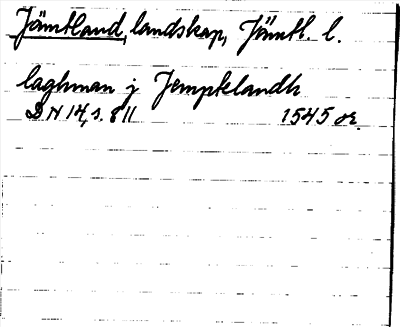 Jämtland, landskap, Jämtl. l.
laghman j Jemptelandh
DN 14, s. 811 1545 or.